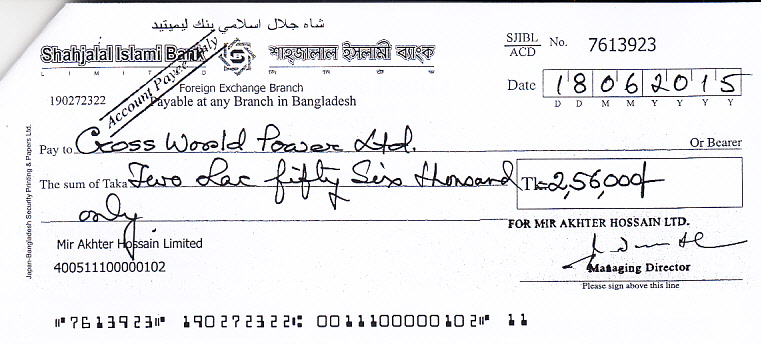 شاه جلال اسلامي بنك ليميتيد
Shahjalal Islami Bank শাহ্জালাল ইসলামী ব্যাংক
L I M I T E D
Account Payee Only
SJIBL
ACD No. 7613923
Foreign Exchange Branch
190272322 Payable at any Branch in Bangladesh
Date 18062015
D D M M Y Y Y Y
Pay to Cross World Power Ltd. Or Bearer
The sum of Taka Two Lac fifty Six thousand Tk=2,56,000/-
only
FOR MIR AKHTER HOSSAIN LTD.
Mir Akhter Hossain Limited
400511100000102
Managing Director
Please sign above this line
Japan-Bangladesh Security Printing & Papers Ltd.
⑈7613923⑈ 190272322⑆ 0011100000102⑈ 11